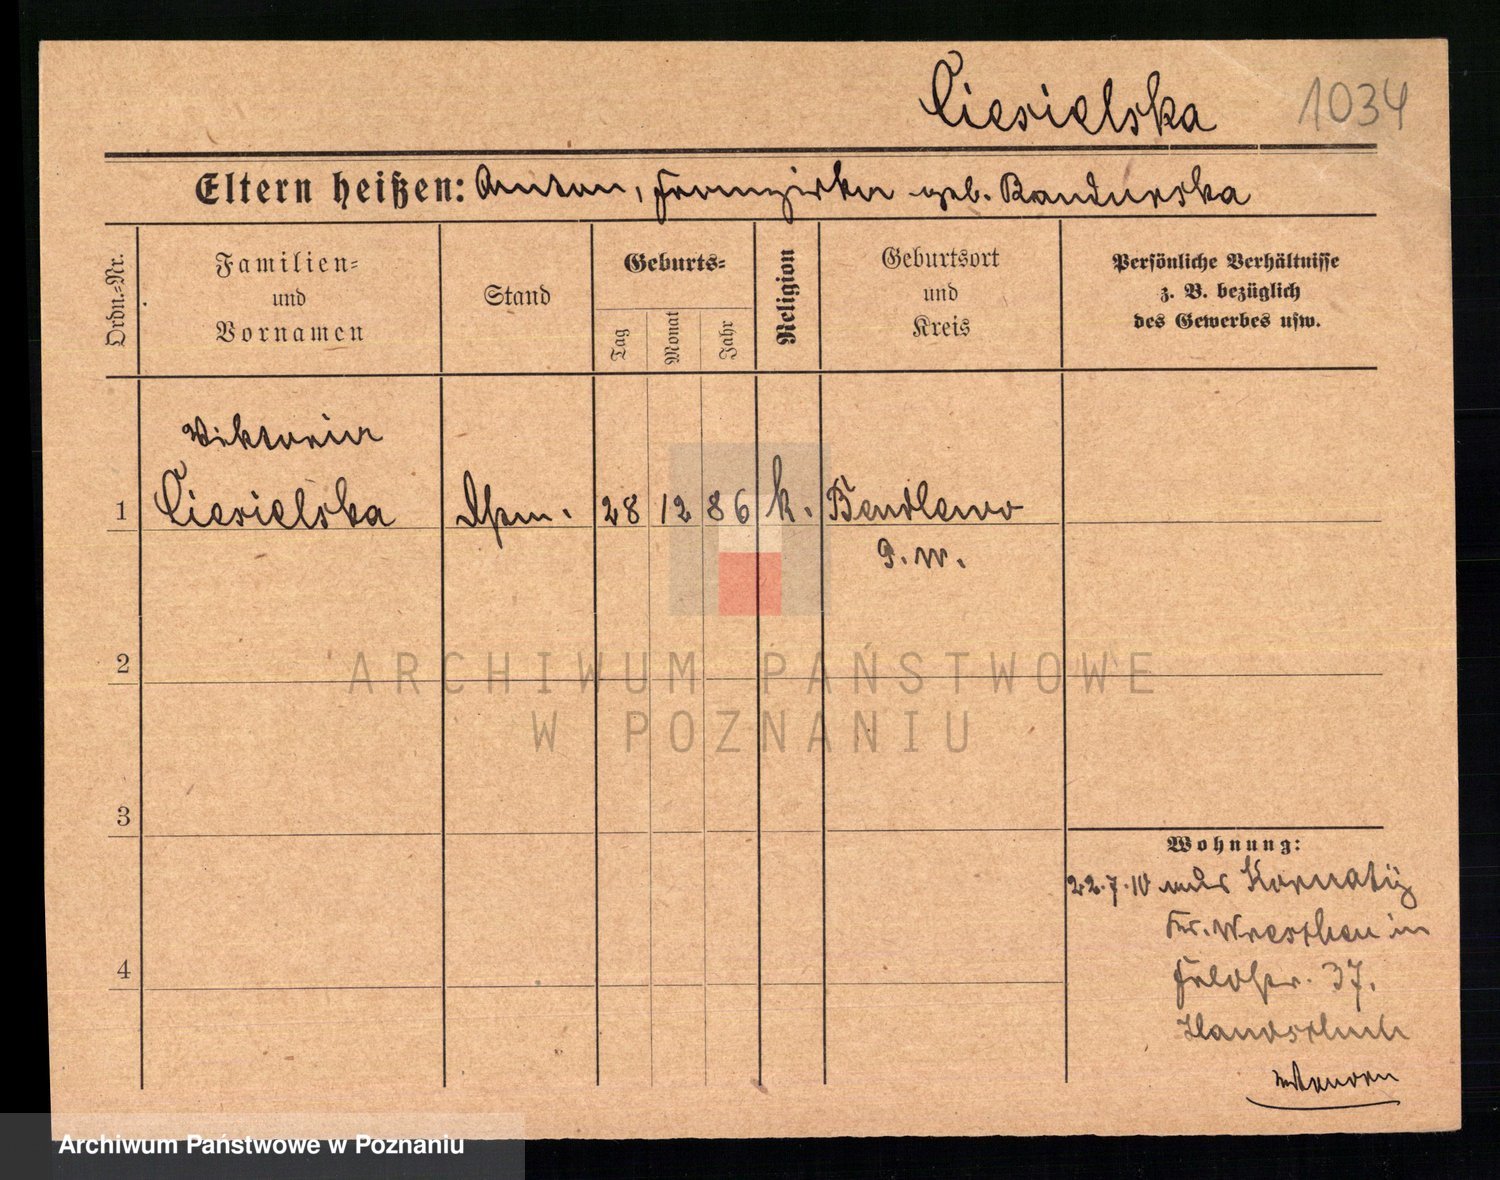 Ciesielska 1034
Eltern heißen: Anton, Franziska geb. Bandurska
Ordn.-Nr.
Familien-
und
Vornamen
Stand
Geburts-
Tag
Monat
Jahr
Religion
Geburtsort
und
Kreis
Persönliche Verhältnisse
z. B. bezüglich
des Gewerbes usw.
Viktoria
1 Ciesielska 28 12 86 k. Bendlewo
P. W.
2
3
4
Wohnung:
22.7.10 aus Kornaty
Kr. Wreschen in
Feldstr. 37.
ARCHIWUM PAŃSTWOWE
W POZNANIU
Archiwum Państwowe w Poznaniu